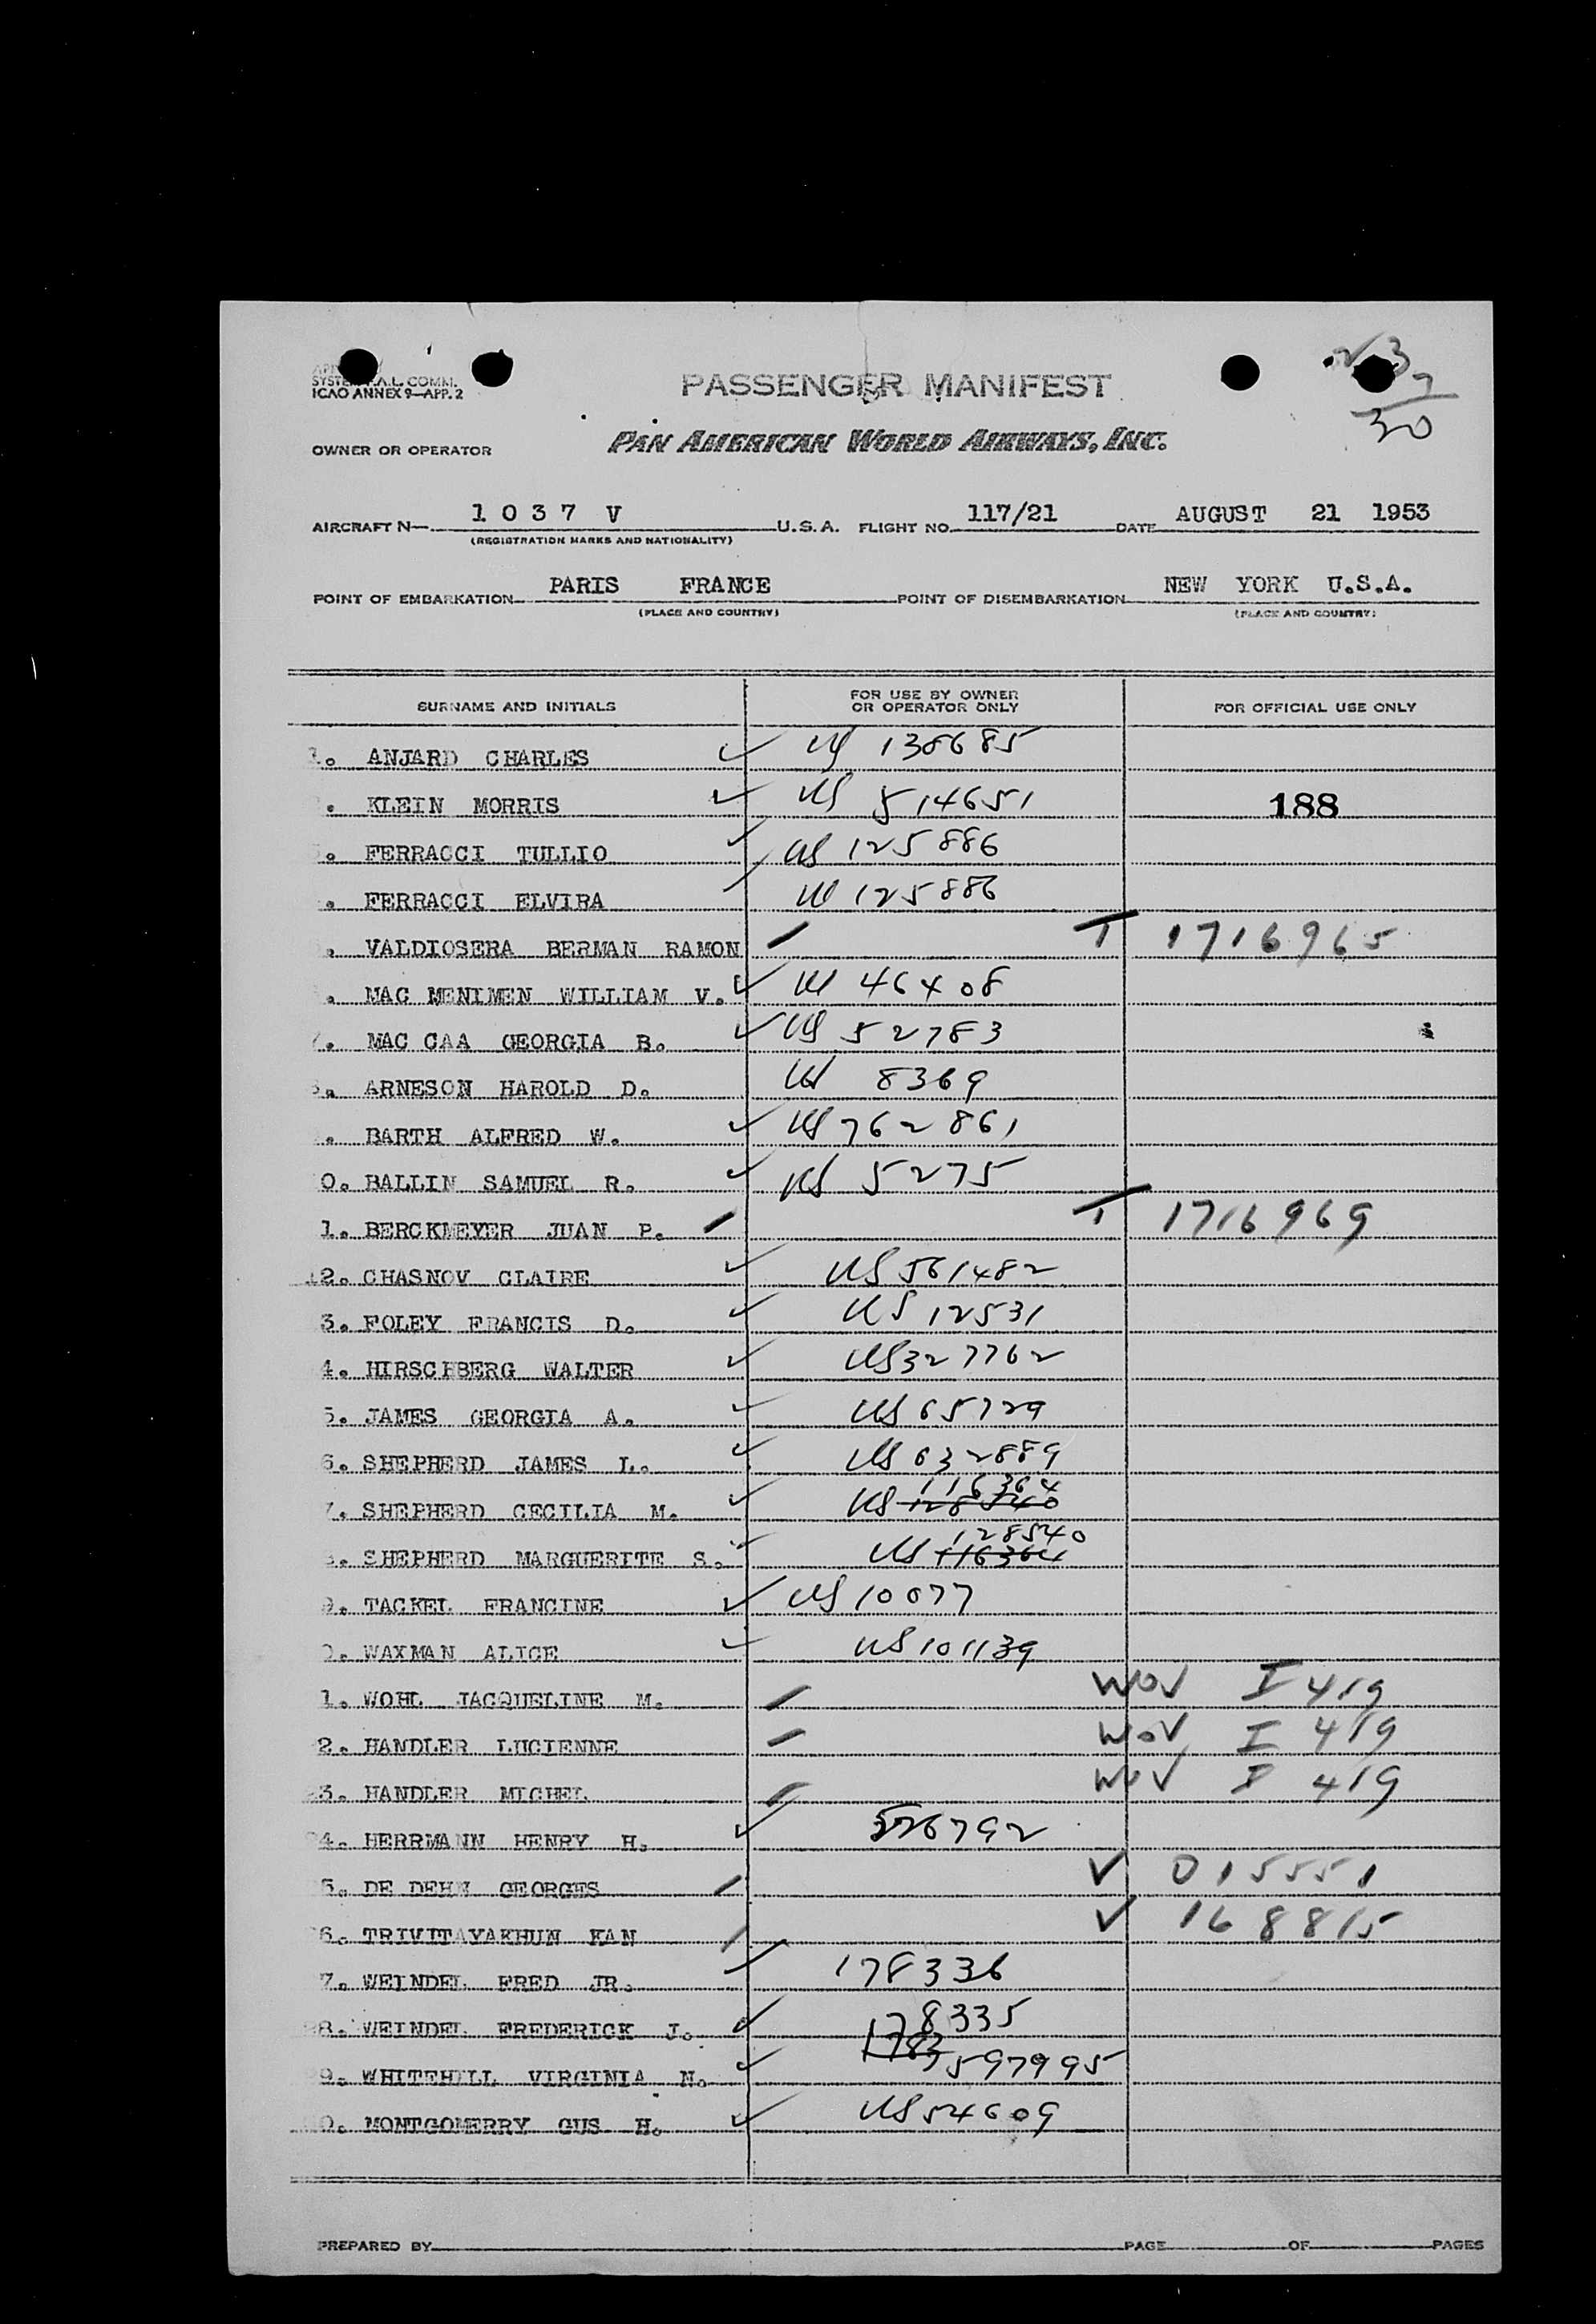 SYSTEM F.A.L. COMM.
ICAO ANNEX 9—APP. 2
PASSENGER MANIFEST
23
7
30
OWNER OR OPERATOR PAN AMERICAN WORLD AIRWAYS, INC.
AIRCRAFT N— 1 0 3 7 V U.S.A. FLIGHT NO. 117/21 DATE AUGUST 21 1953
(REGISTRATION MARKS AND NATIONALITY)
POINT OF EMBARKATION PARIS FRANCE POINT OF DISEMBARKATION NEW YORK U.S.A.
(PLACE AND COUNTRY) (PLACE AND COUNTRY)
SURNAME AND INITIALS FOR USE BY OWNER OR OPERATOR ONLY FOR OFFICIAL USE ONLY
1. ANJARD CHARLES ✓ US 138685
. KLEIN MORRIS ✓ US 514651 188
. FERRACCI TULLIO ✓ US 125886
. FERRACCI ELVIRA US 125886
. VALDIOSERA BERMAN RAMON T 1716965
. MAC MENIMEN WILLIAM V. ✓ US 46408
7. MAC CAA GEORGIA B. ✓ US 52783
8. ARNESON HAROLD D. US 8369
. BARTH ALFRED W. ✓ US 762861
0. BALLIN SAMUEL R. ✓ US 5275
1. BERCKMEYER JUAN P. T 1716969
12. CHASNOV CLAIRE ✓ US 561482
3. FOLEY FRANCIS D. ✓ US 12531
4. HIRSCHBERG WALTER ✓ US 327762
5. JAMES GEORGIA A. ✓ US 65729
6. SHEPHERD JAMES L. ✓ US 632889
7. SHEPHERD CECILIA M. ✓ US 128540 116364
8. SHEPHERD MARGUERITE S. ✓ US 116364 128540
9. TACKEL FRANCINE ✓ US 10077
0. WAXMAN ALICE ✓ US 101139
1. WOHL JACQUELINE M. WOV I 419
2. HANDLER LUCIENNE WOV I 419
23. HANDLER MICHEL WOV I 419
24. HERRMANN HENRY H. ✓ 526792
5. DE DEHN GEORGES V 015551
26. TRIVITAYAKHUN KAN V 168815
7. WEINDEL FRED JR. ✓ 178336
28. WEINDEL FREDERICK J. ✓ 178335
9. WHITEHILL VIRGINIA N. ✓ 1783 597995
0. MONTGOMERRY GUS H. ✓ US 54609
PREPARED BY PAGE OF PAGES